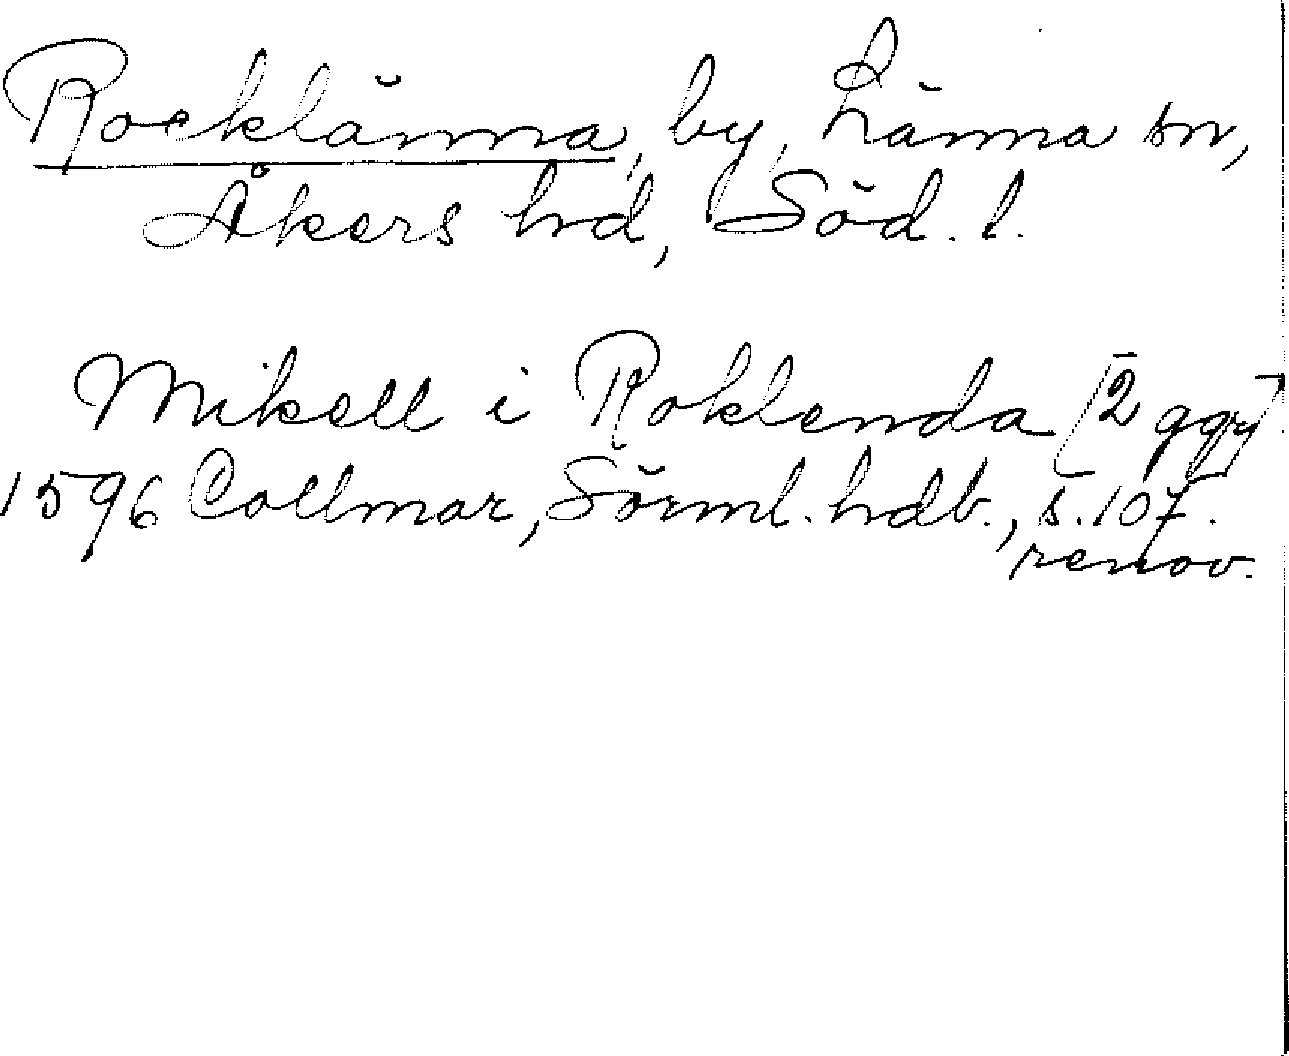 Rocklänna, by, Länna sn,
Åkers hd, Söd. l.
Mikell i Roklenda [2 ggr]
1596 Collmar, Sörml. hdb., s. 107.
renov.